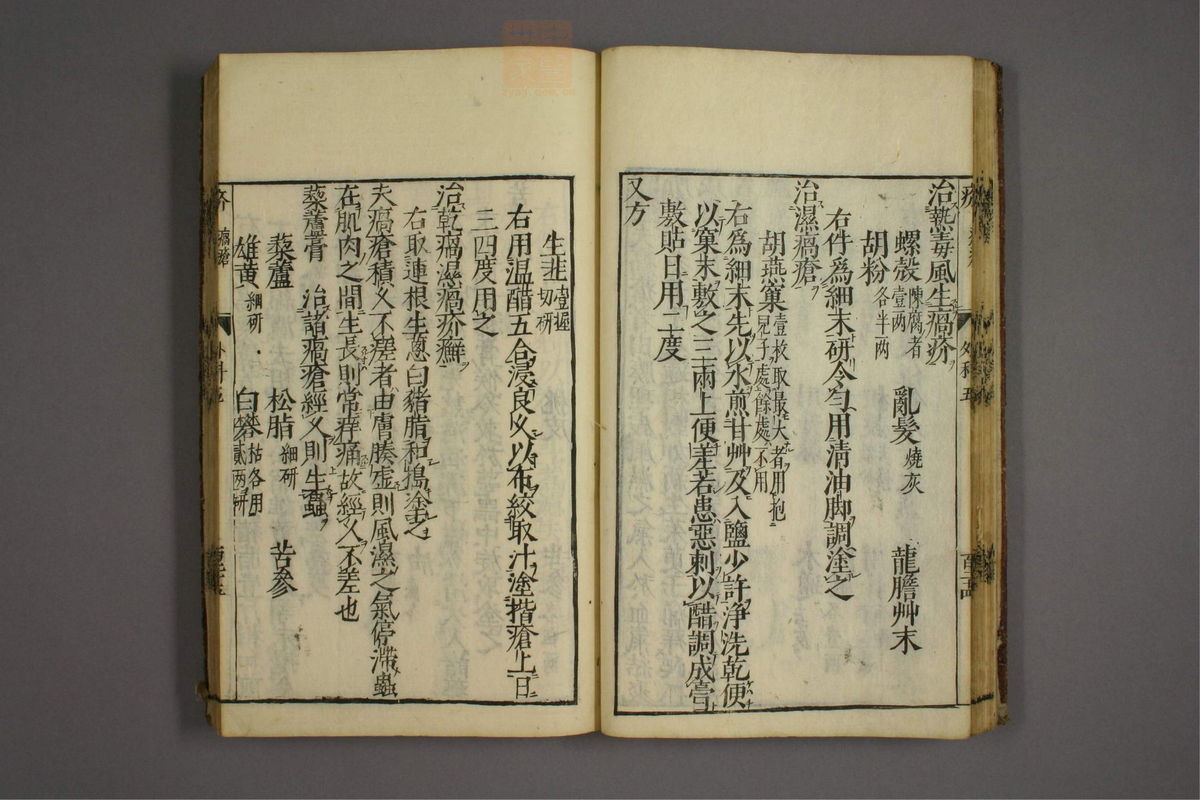 治熱毒風生瘑疥
螺殼陳腐者壹两 亂髮燒灰 龍膽艸末
胡粉各半两
右件爲細末研令勻用清油脚調塗之
治濕瘑瘡
胡燕窠壹枚取最大者用抱見子處餘處不用
右爲細末先以水煎甘艸及入鹽少許淨洗乾便
以窠末敷之三兩上便差若患惡刺以醋調成膏
敷貼日用二度
又方
生韭壹握切研
右用温醋五合浸良久以布絞取汁塗揩瘡上日
三四度用之
治乾瘑濕瘑疥癬
右取連根生蔥白豬脂和搗塗之
夫瘑瘡積久不瘥者由膚腠虛則風濕之氣停滯蟲
在肌肉之間生長則常痒痛故經久不差也
藜蘆膏 治諸瘑瘡經久則生蟲
藜蘆 松脂細研 苦參
雄黄細研 白礬枯各用貳两研
瘑瘡
外科五